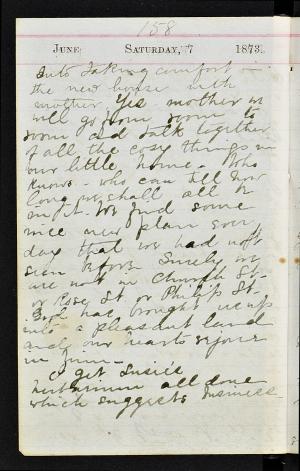 158
June Saturday, 7 1873.
into taking comfort in
the new house with
mother. Yes mother we
will go from room to
room and talk together
of all the cosy things in
our little home. Who
knows - who can tell how
long we shall all be
in it. We find some
nice new plan every
day that we had not
seen before. Surely we
are not in Church St.
or Rose St or Philip St.
God has brought us up
into a pleasant land
and our hearts rejoice
in Him.
get Susie's
all done
which suggests business